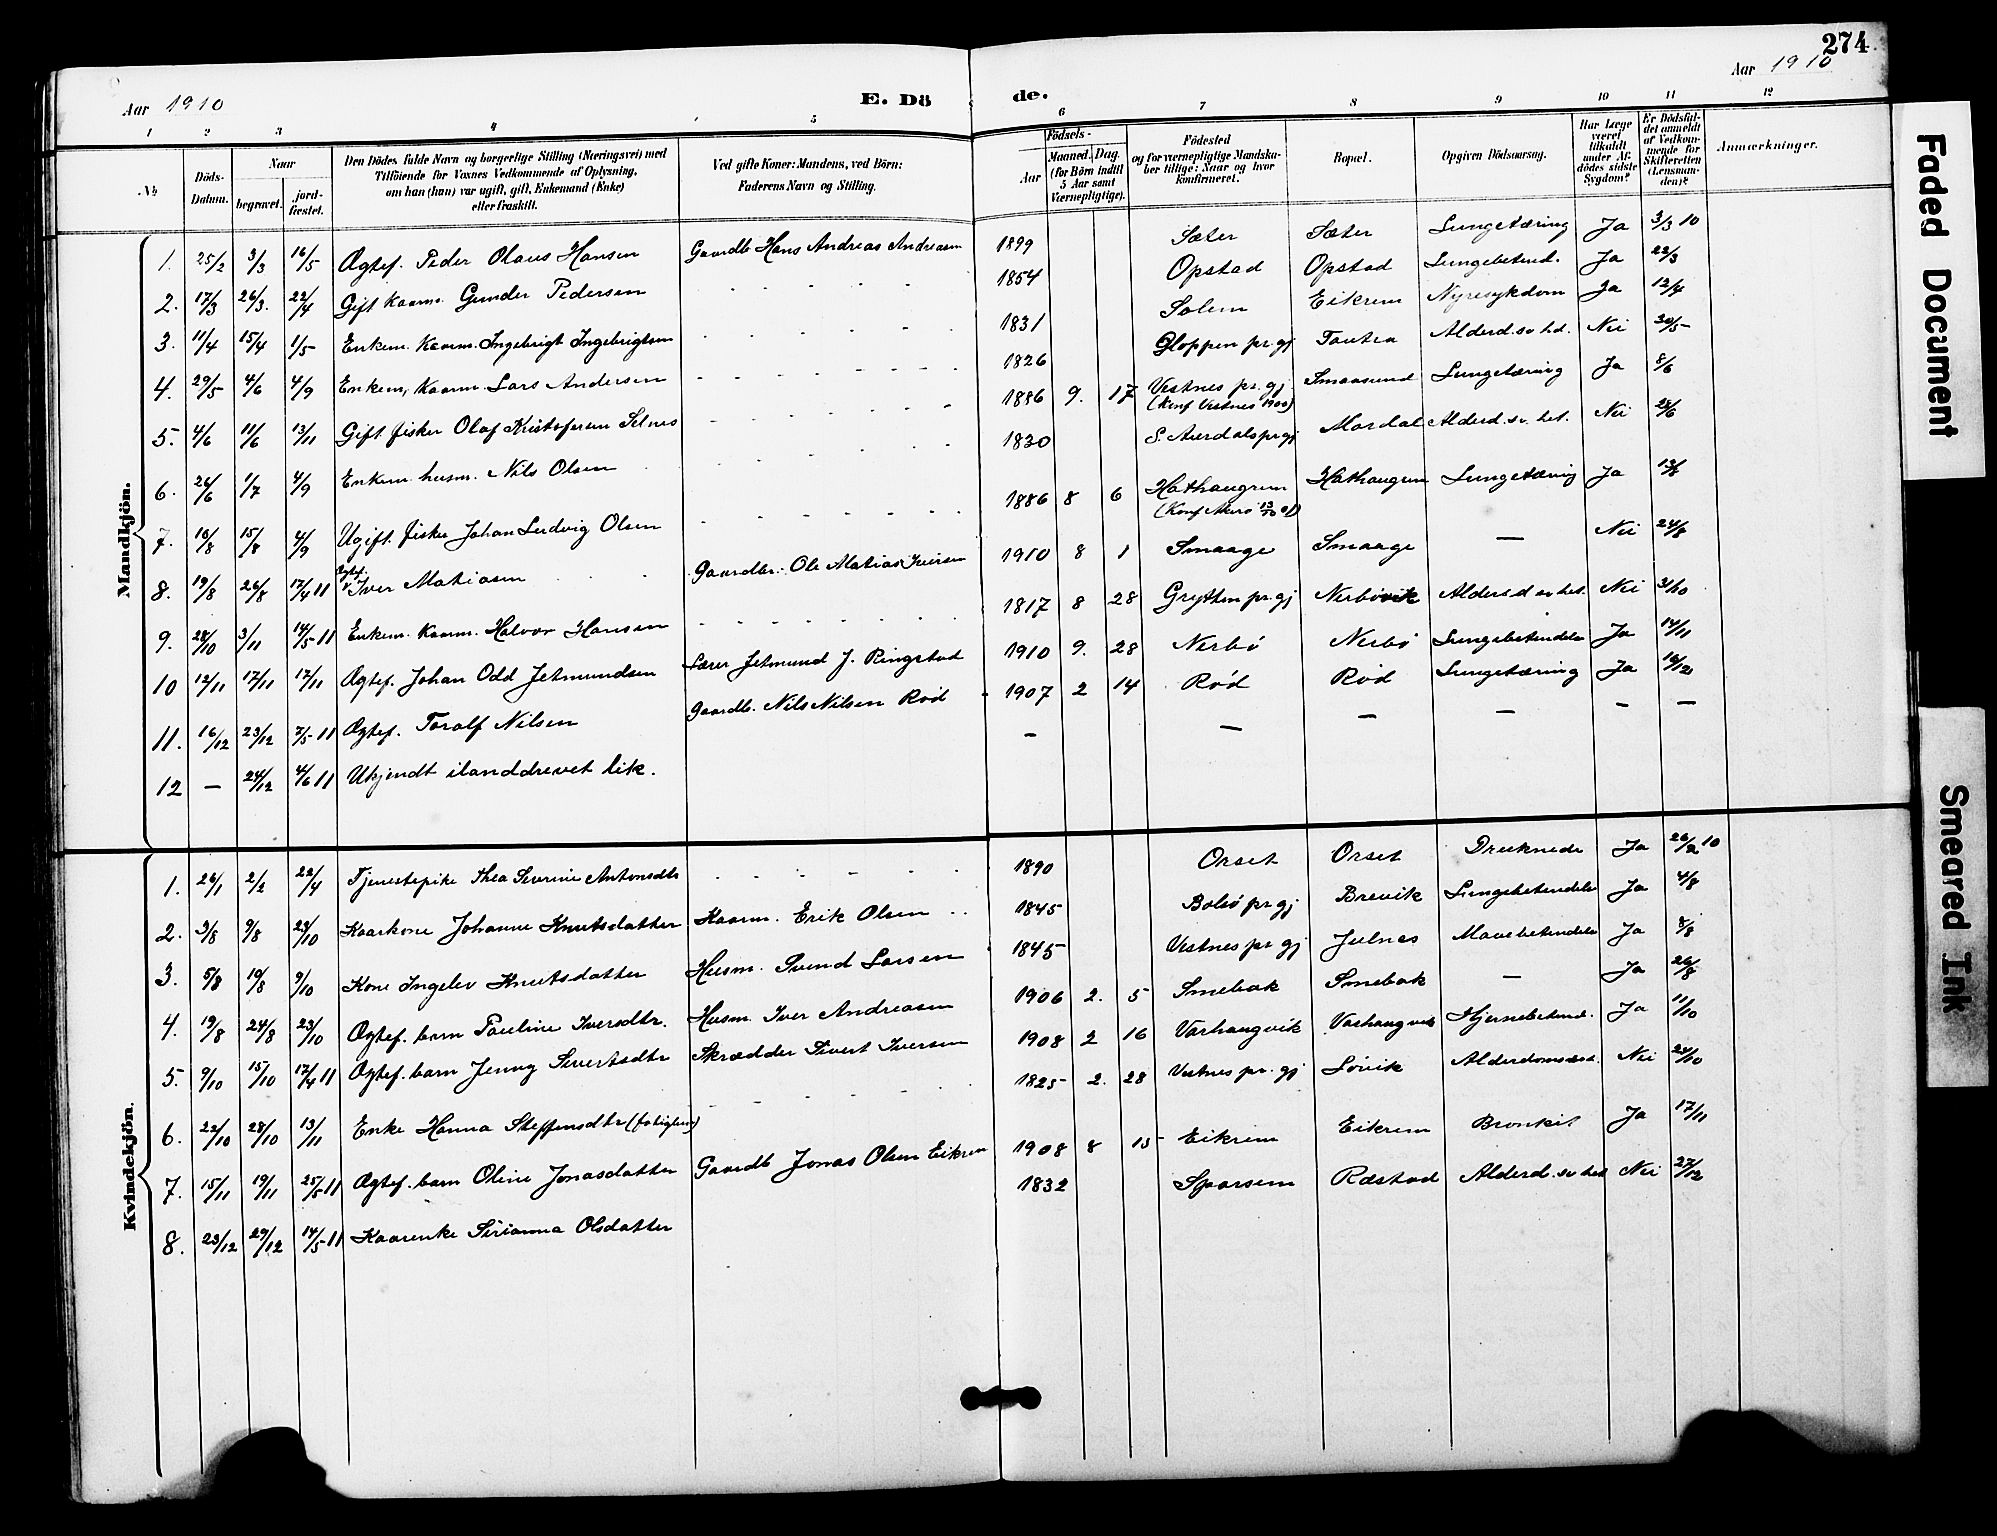 274
Aar 1910
E. Dö de.
Aar 1910
1 2 3 4 5 6 7 8 9 10 11 12
№
Döds-Datum.
Naar
begravet.
jord-fæstet.
Den Dödes fulde Navn og borgerlige Stilling (Næringsvei) med
Tilföiende for Voxnes Vedkommende af Oplysning,
om han (hun) var ugift, gift, Enkemand (Enke)
eller fraskilt.
Ved gifte Koner: Mandens, ved Börn:
Faderens Navn og Stilling.
Födsels-
Aar
Maaned. Dag.
(for Börn indtil
5 Aar samt
Værnepligtige).
Födested
og for værnepligtige Mandska-
ber tillige: Naar og hvor
konfirmeret.
Bopæl.
Opgiven Dödsaarsag.
Har Læge
været
tilkaldt
under Af-
dödes sidste
Sygdom?
Er Dödsfal-
det anmeldt
af Vedkom-
mende for
Skifteretten
(Lensman-
den)?
Anmærkninger.
Mandkjön.
1. 25/2 3/3 16/5 Ægtef. Peder Olaus Hansen Gaardb Hans Andreas Andreasen 1899 Sæter Sæter Lungetæring Ja 3/3 10
2. 17/3 26/3. 22/4 Gift kaarm. Gunder Pedersen 1854 Opstad Opstad Lungebetend. Ja 22/3
3. 11/4 15/4 1/5 Enkem. Kaarm. Ingebrigt Ingebrigtsen 1831 Solem Eikrem Nyresykdom Ja 12/4
4. 29/5 4/6 4/9 Enkem, Kaarm Lars Andersen 1826 Gloppen pr.gj Tautra Alderd.sv.hd. Nei 30/5
5. 4/6 11/6 13/11 Gift fisker Olaf Kristofersen Selnes 1886 9. 17 Vestnes pr. gj Smaasund Lungetæring Ja 8/6
(Konf Vestnes 1900)
6. 26/6 1/7 4/9 Enkem. husm. Nils Olsen 1830 S. Aurdals pr gj Mordal Alderd. sv. het. Nei 28/6
7. 10/8 15/8 4/9 Ugift fisker Johan Ludvig Olsen 1886 8 6 Hathaugren Hathaugren Lungetæring Ja
8. 19/8 26/8 17/4 11 Ægtef. Iver Matiasen Gaardbr. Ole Matias Iversen 1910 8 1 Smaage Smaage — Nei 24/8
9. 28/10 3/11 14/5 11 Enkem. Kaarm. Halvor Hansen 1817 8 28 Grytten pr. gj Nerbövik Alders d sv het. Nei 31/10
10 12/11 17/11 17/11 Ægtef. Johan Odd Jetmundsen Lærer Jetmund J. Ringstad 1910 9. 28 Nerbö Nerbö Lungebetendelse Ja 14/11
11. 16/12 23/12 7/5 11 Ægtef. Toralf Nilsen Gaardb. Nils Nilsen Röd 1907 2 14 Röd Röd Lungetæring Ja
12 — 24/12 4/6 11 Ukjendt ilanddrevet lik. — — — — — —
Kvindekjön.
1. 26/1 2/2 22/4 Tjenestepike Thea Severine Antonsdtr 1890 Orset Orset Druknede Ja 26/2 10
2. 3/8 9/8 23/10 Kaarkone Johanne Knutsdatter Kaarm. Erik Olsen 1845 Bolsö pr gj Brevik Lungebetendelse Ja 4/8
3. 5/8 19/8 9/10 Kone Ingelev Knutsdatter Husm. Svend Larsen 1845 Vestnes pr gj Julnes Mavebetendelse Ja 8/8
4. 19/8 24/8 23/10 Ægtef. barn Pauline Iversdtr. Husm. Iver Andreasen 1906 2. 5 Smebak Smebak — Ja 26/8
5. 9/10 15/10 17/4 11 Ægtef. barn Jenny Sivertsdtr Skrædder Sivert Iversen 1908 2 16 Varhaugvik Varhaugvik Hjernebetend. Ja 11/10
6. 22/10 28/10 13/11 Enke Hanna Steffensdtr 1825 2. 28 Vestnes pr. gj Lövik Alderdomssv. Nei 24/10
7. 15/11 19/11 25/5 11 Ægtef. barn Oline Jonasdatter Gaardb Jonas Olsen Eikrem 1908 8 15 Eikrem Eikrem Bronkit Ja 17/11
8. 23/12 29/12 14/5 11 Kaarenke Sirianna Olsdatter 1832 Sporsem Ræstad Alderd. sv het Nei 27/12
Faded Document
Smeared Ink